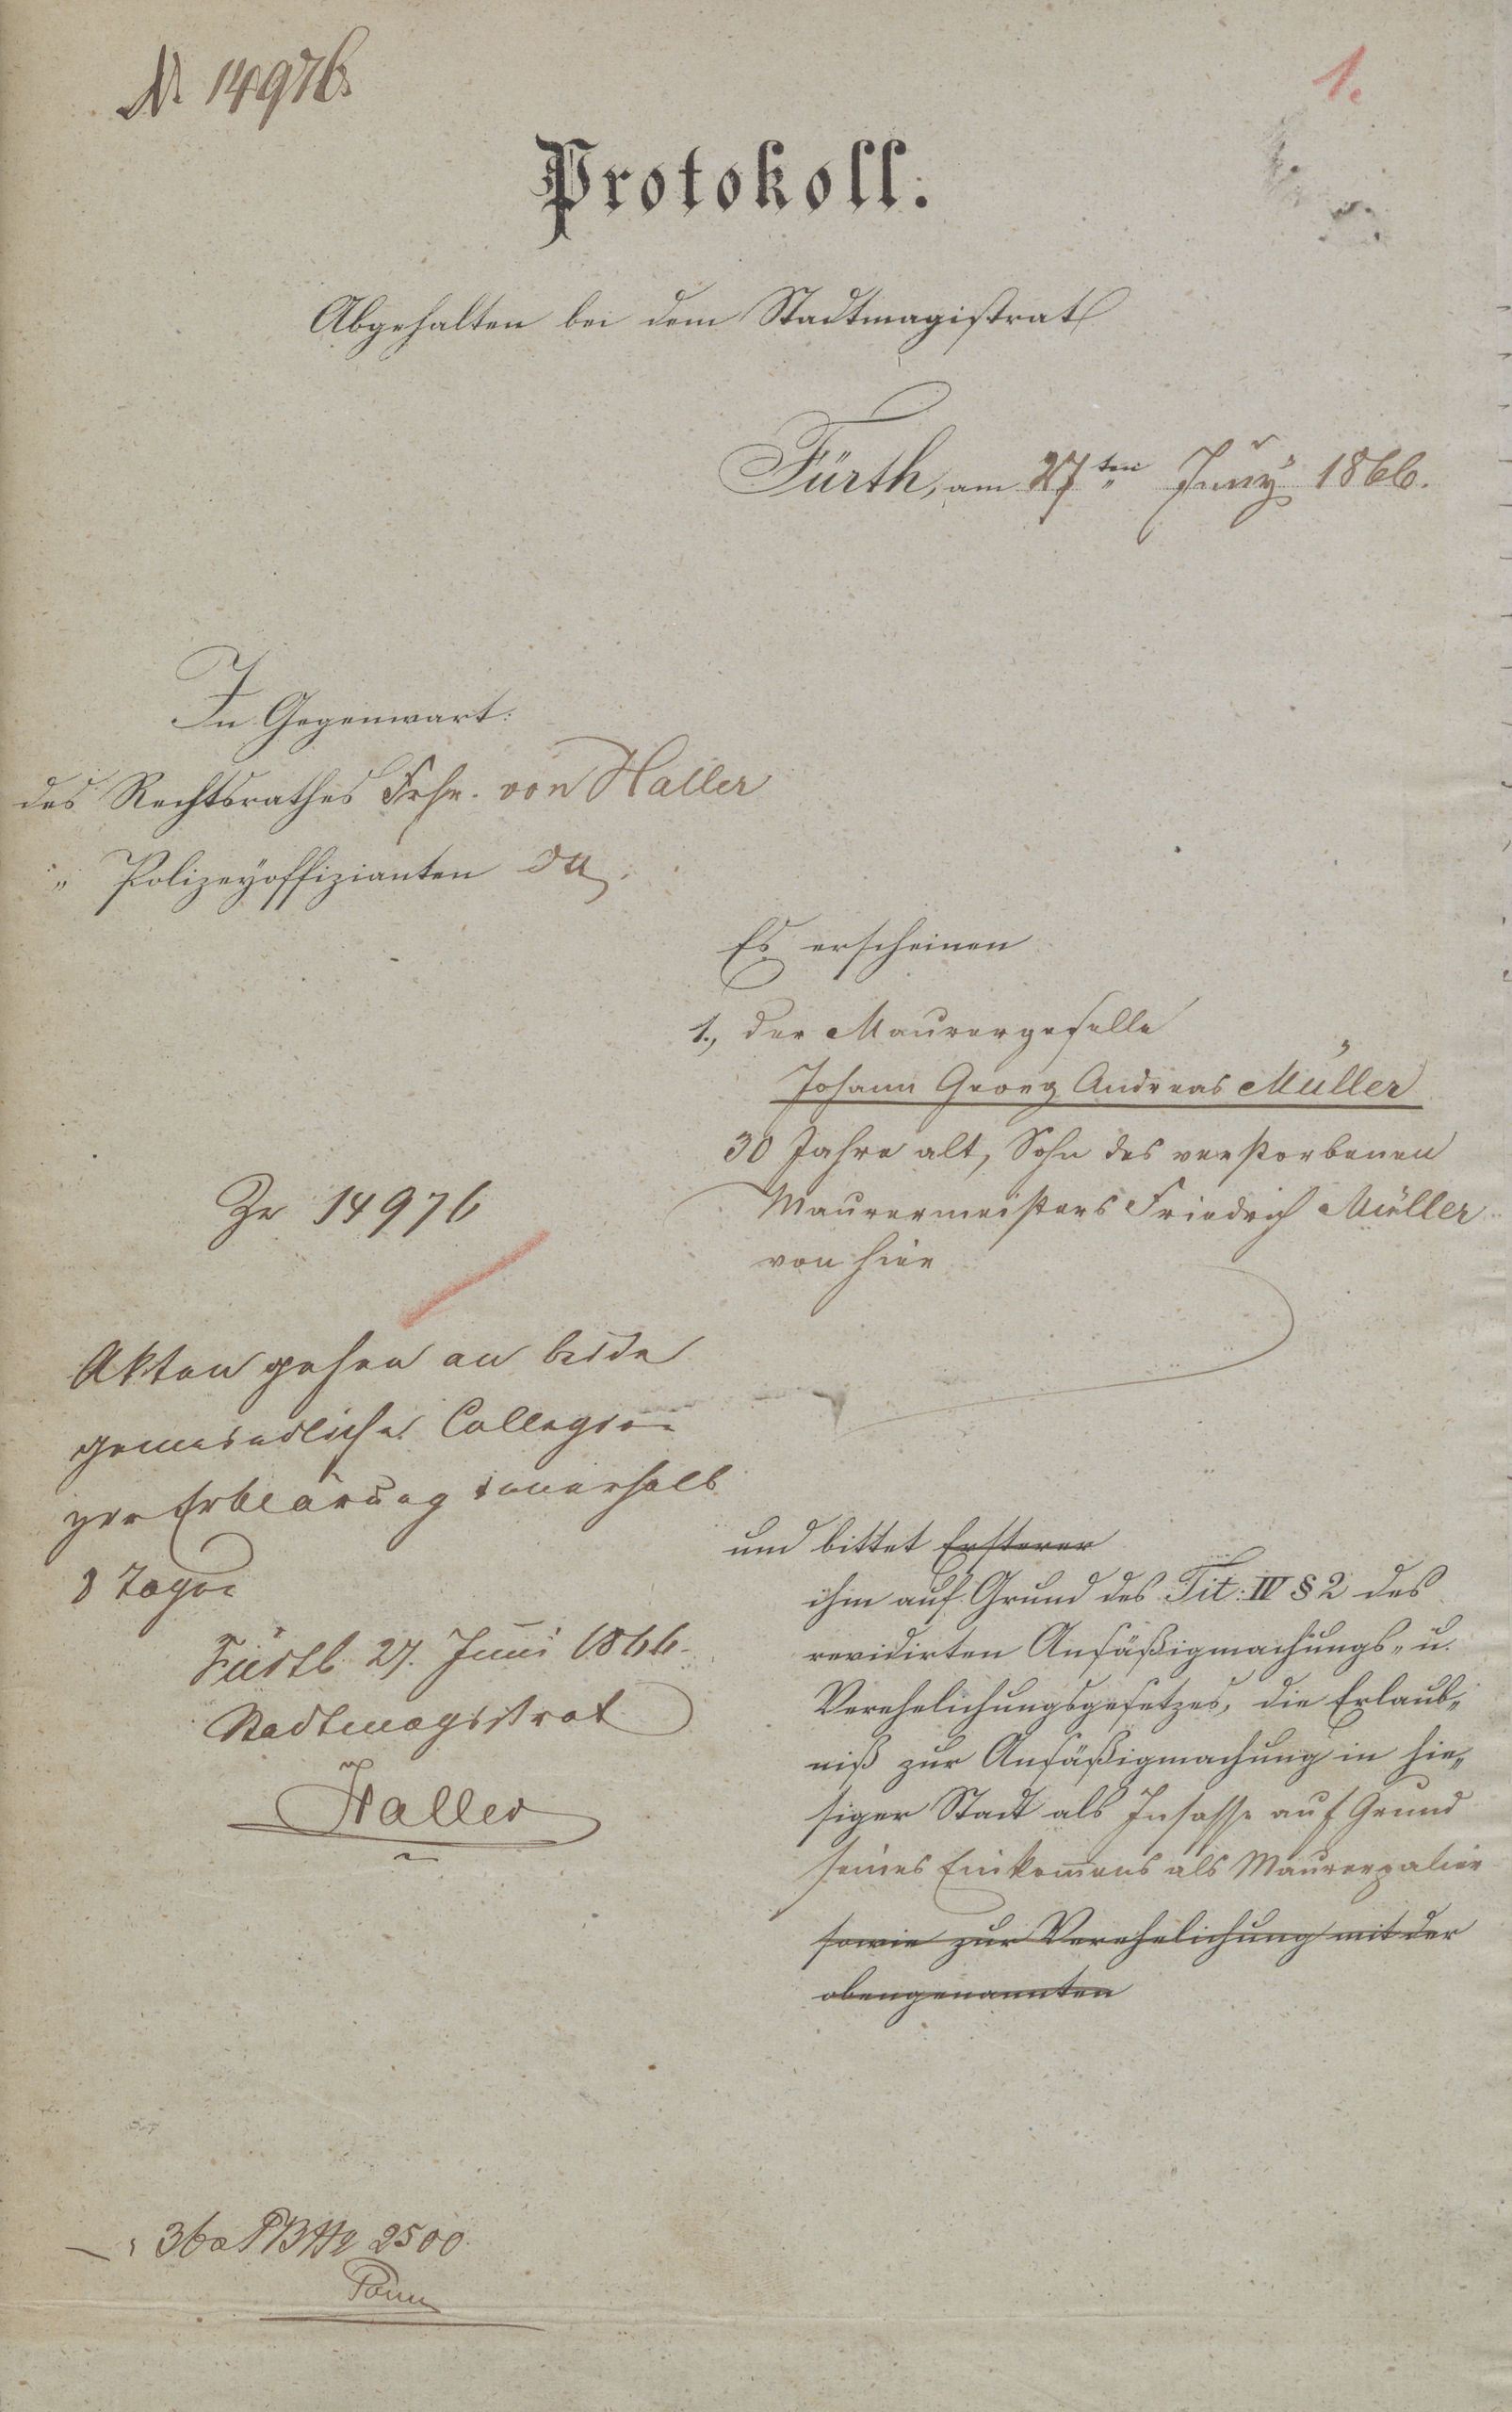 N. 14976.
1.
Protokoll.
Abgehalten bei dem Stadtmagistrat
Fürth, am 27ten Juny 1866.
In Gegenwart:
des Rechtsrathes Frhr. von Haller
" Polizeyoffizianten
Es erscheinen
1., der Maurergeselle
Johann Georg Andreas Müller
30 Jahre alt, Sohn des verstorbenen
Maurermeisters Friedrich Müller
von hier
und bittet Ersterer
ihm auf Grund des Tit: IV § 2 des
revidirten Ansäßigmachungs- u.
Verehelichungsgesetzes, die Erlaub-
niß zur Ansäßigmachung in hie-
siger Stadt als Insasse auf Grund
seines Einkom̅ens als Maurerpalier
sowie zur Verehelichung mit der
obengenannten
Zu 14976
Akten gehen an beide
gemeindliche Collegien
zur Erklärung innerhalb
8 Tagen
Fürth 27. Juni 1866.
Stadtmagistrat
Haller
2500.